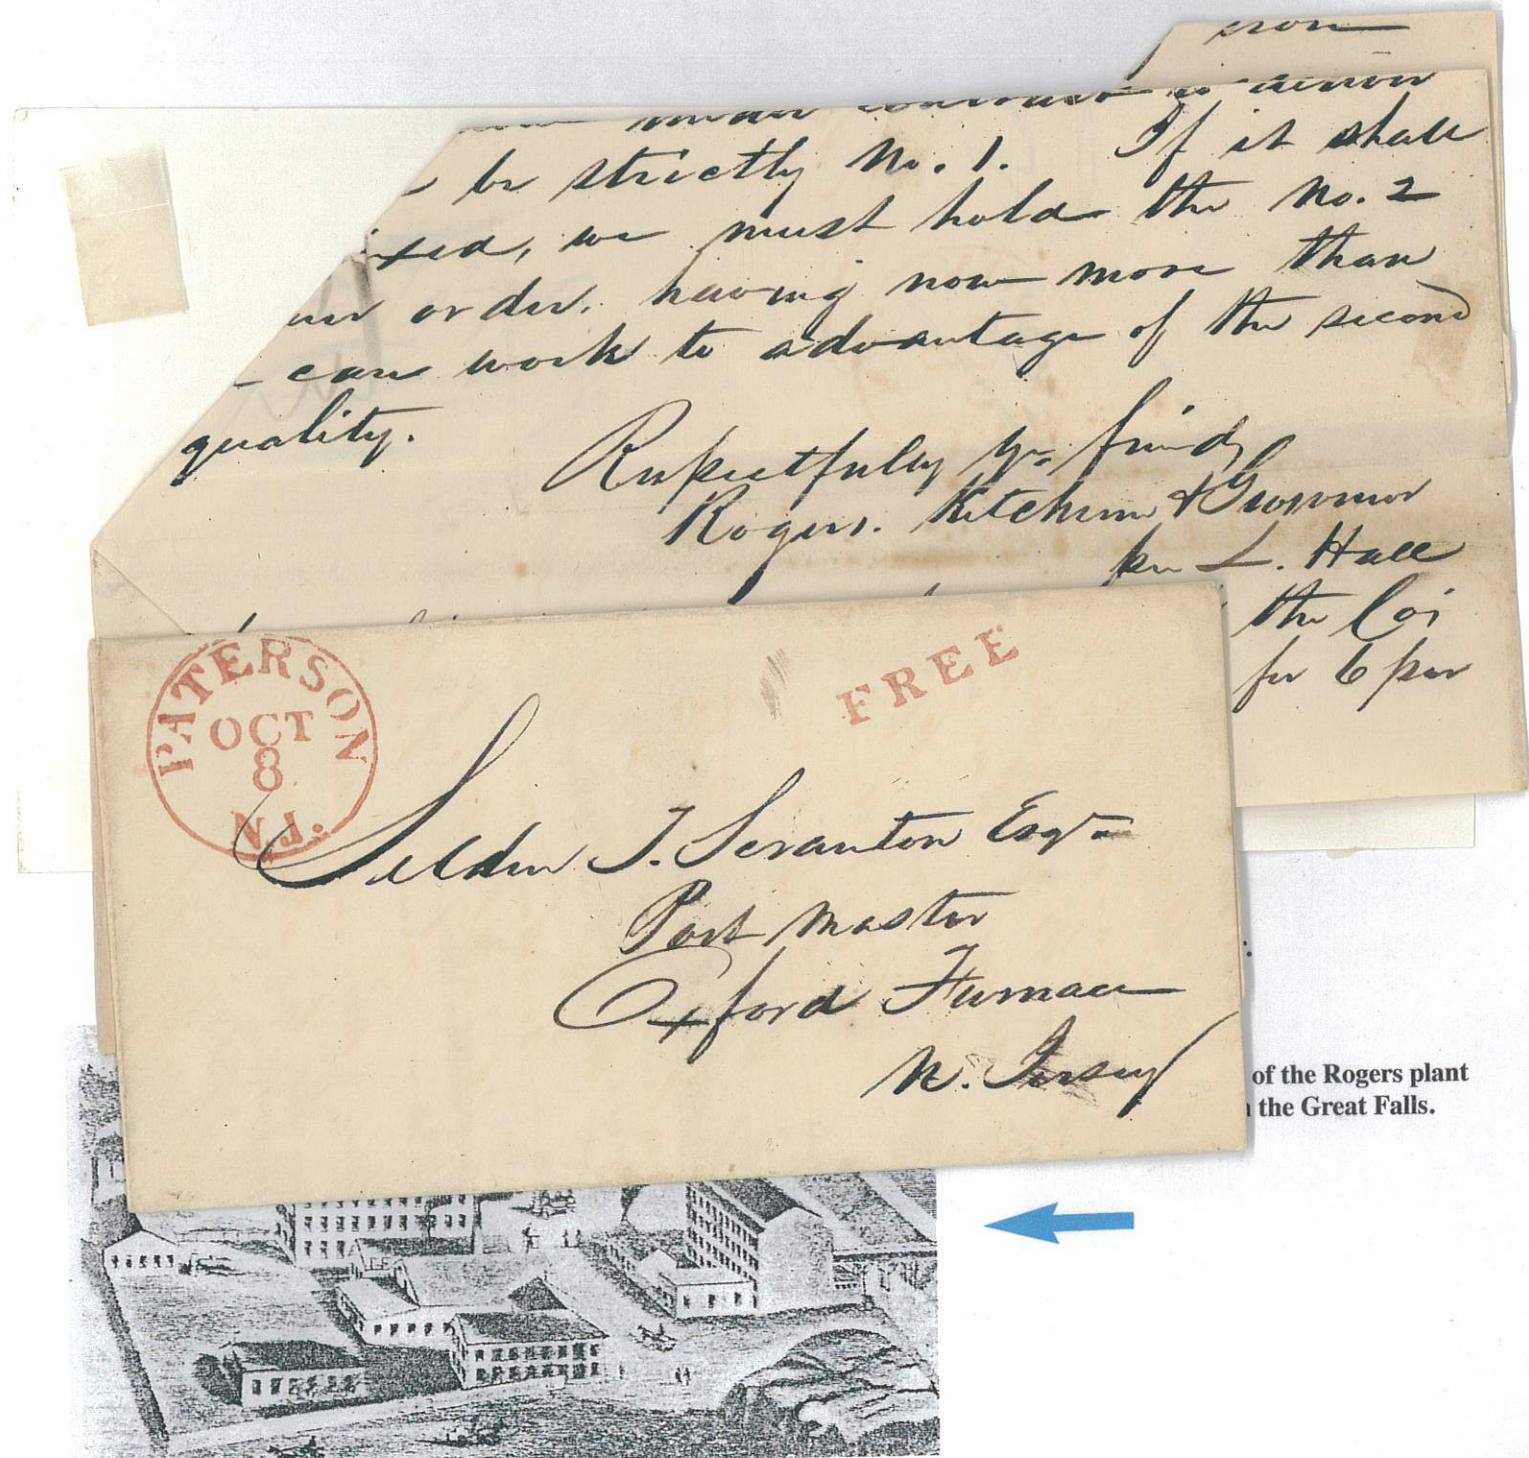 iron
under contract is
be strictly No. 1. If it shall
we must hold the No. 2
order. having now more than
can work to advantage of the second
quality.
Respectfully Yrs friends
Rogers. Ketchum & Grosvenor
per L. Hall
the Coi
for 6 per
PATERSON
OCT
8
N.J.
FREE
Selden T. Scranton Esqr
Post Master
Oxford Furnace
N. Jersey
of the Rogers plant
the Great Falls.